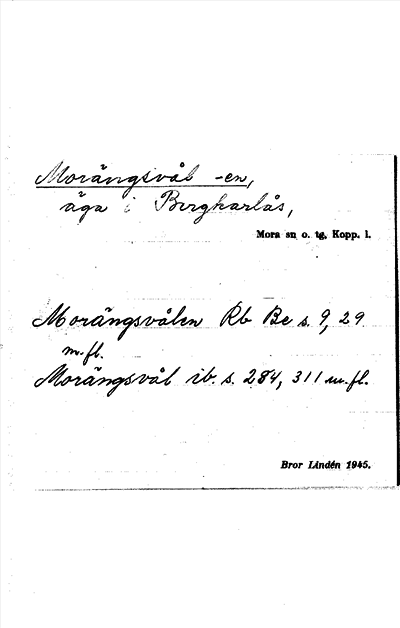 Morängsvål -en,
äga i Bergkarlås,
Mora sn o. tg, Kopp. l.
Morängsvålen Rb Be s. 9, 29
m.fl.
Morängsvål ib. s. 284, 311 m.fl.
Bror Lindén 1945.